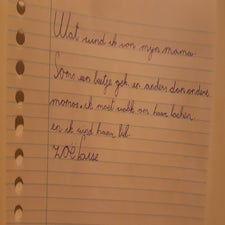 Wat vind ik van mijn mama
Soms een beetje gek en anders dan andere
mama's. ik moet vaak om haar lachen
en ik vind haar lief
ZOË